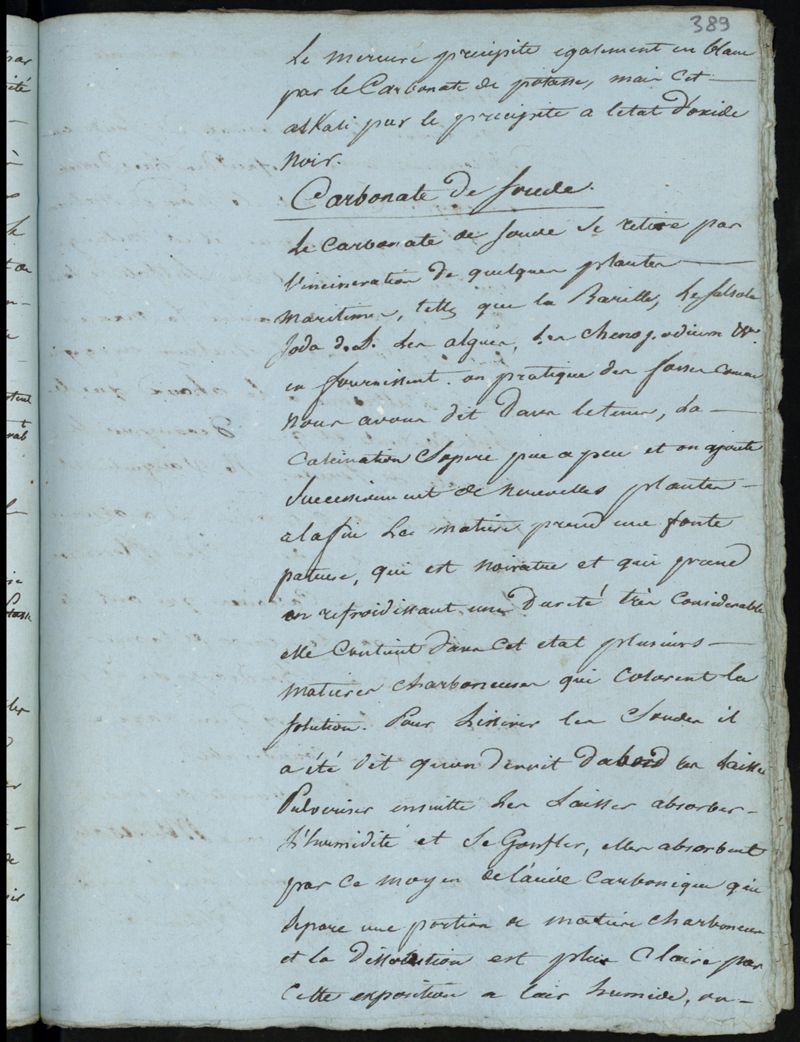 389
Le mercure précipite également en blanc
par le Carbonate de potasse, mais cet
alkali pur le précipite a letat d'oxide
noir.
Carbonate de soude.
Le carbonate de soude se retire par
l'incineration de quelques plantes
maritimes, telles que la Barille, le salsola
soda d. L. les algues, les chenopodium &c.
en fournissent. on pratique des fosses comme
nous avons dit dans le tems, la
calcination s'opere peu a peu et on ajoute
successivement de nouvelles plantes
a la fin la matiere prend une fonte
pateuse, qui est noiratre et qui prend
en refroidissant une dureté très considerable
elle contient dans cet etat plusieurs
matieres charboneuses qui colorent la
solution. Pour lessiver les soudes il
a été dit qu'on devoit d'abord les laisser
Pulveriser ensuitte les laisser absorber
l'humidité et se Gonfler, elles absorbent
par ce moyen de l'acide carbonique qui
separe une portion de matiere charboneuse
et la dissolution est plus claire par
cette exposition a l'air humide, on